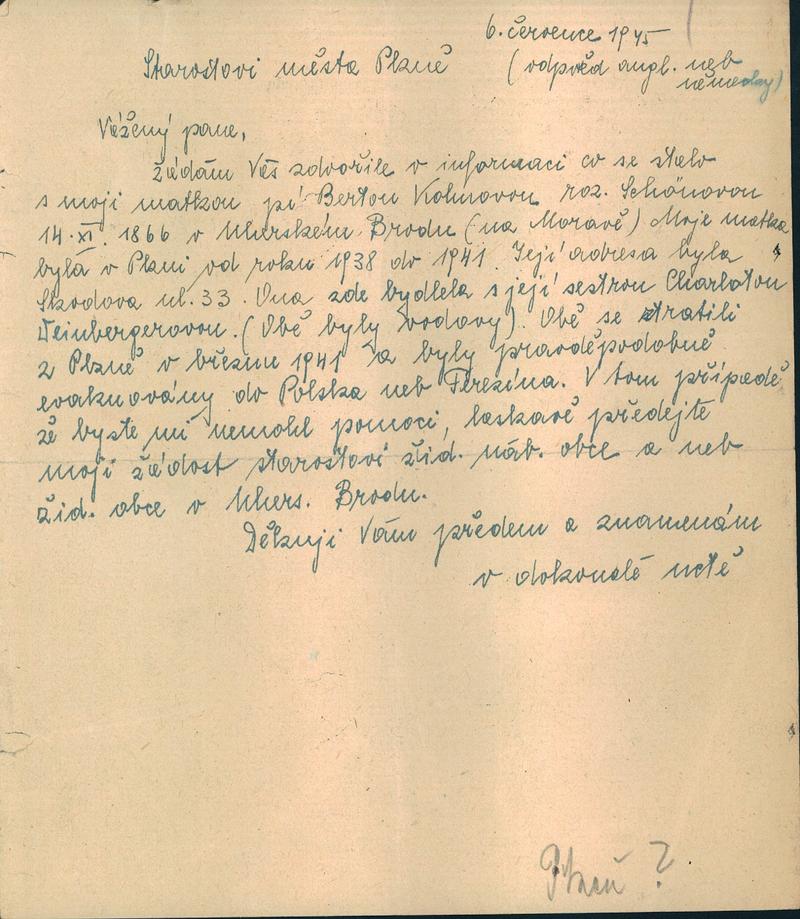 6. července 1945
Starostovi města Plzně (odpověd angl. neb
německy)
Vážený pane,
žádám Vás zdvořile o informaci co se stalo
s moji matkou pí Bertou Kohnovou roz. Schönovou
14. XI. 1866 v Uherském Brodu (na Moravě) Moje matka
byla v Plzni od roku 1938 do 1941. Její adresa byla
Skodova ul. 33. Ona zde bydlela s její sestrou Charlotou
Weinbergerovou. (Obě byly vdovy). Obě se ztratili
z Plzně v březnu 1941 a byly pravděpodobně
evakuovány do Polska neb Terezína. V tom případě
že byste mi nemohl pomoci, laskavě předejte
moji žádost starostovi žid. náb. obce a neb
žid. obce v Uhers. Brodu.
Děkuji Vám předem a znamenám
v dokonalé uctě
Plzeň ?